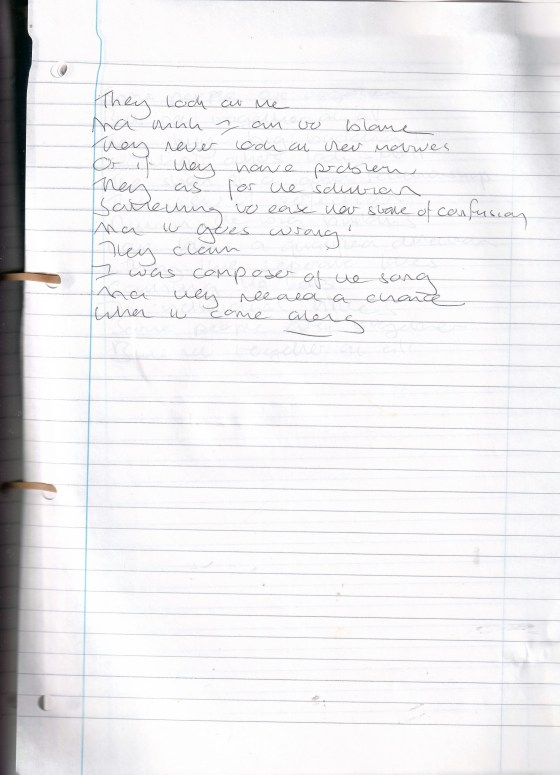 They look at me
And think I am to blame
They never look at their motives
Or if they have problems
They as for the solution
Something to ease their state of confusion
And it goes wrong!
They claim
I was composer of the song
And they needed a chance
When it come along